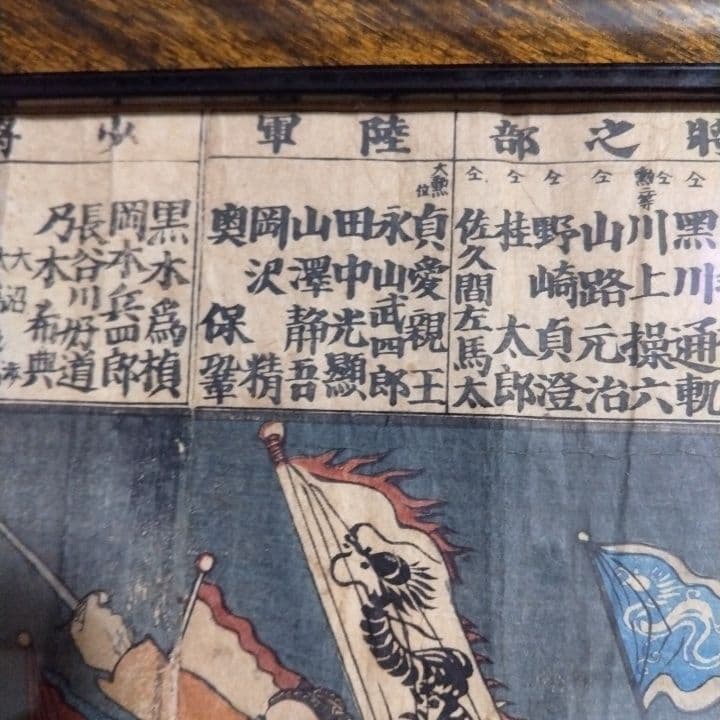 將之部
陸軍
少將
仝
黑川通軌
仝
勲二等
川上操六
仝
山路元治
仝
野崎貞澄
仝
桂太郎
仝
佐久間左馬太
大勲位
貞愛親王
永山武四郎
田中光顯
山澤静吾
岡沢精
奥保鞏
黒木爲楨
岡本兵四郎
長谷川好道
乃木希典
大沼